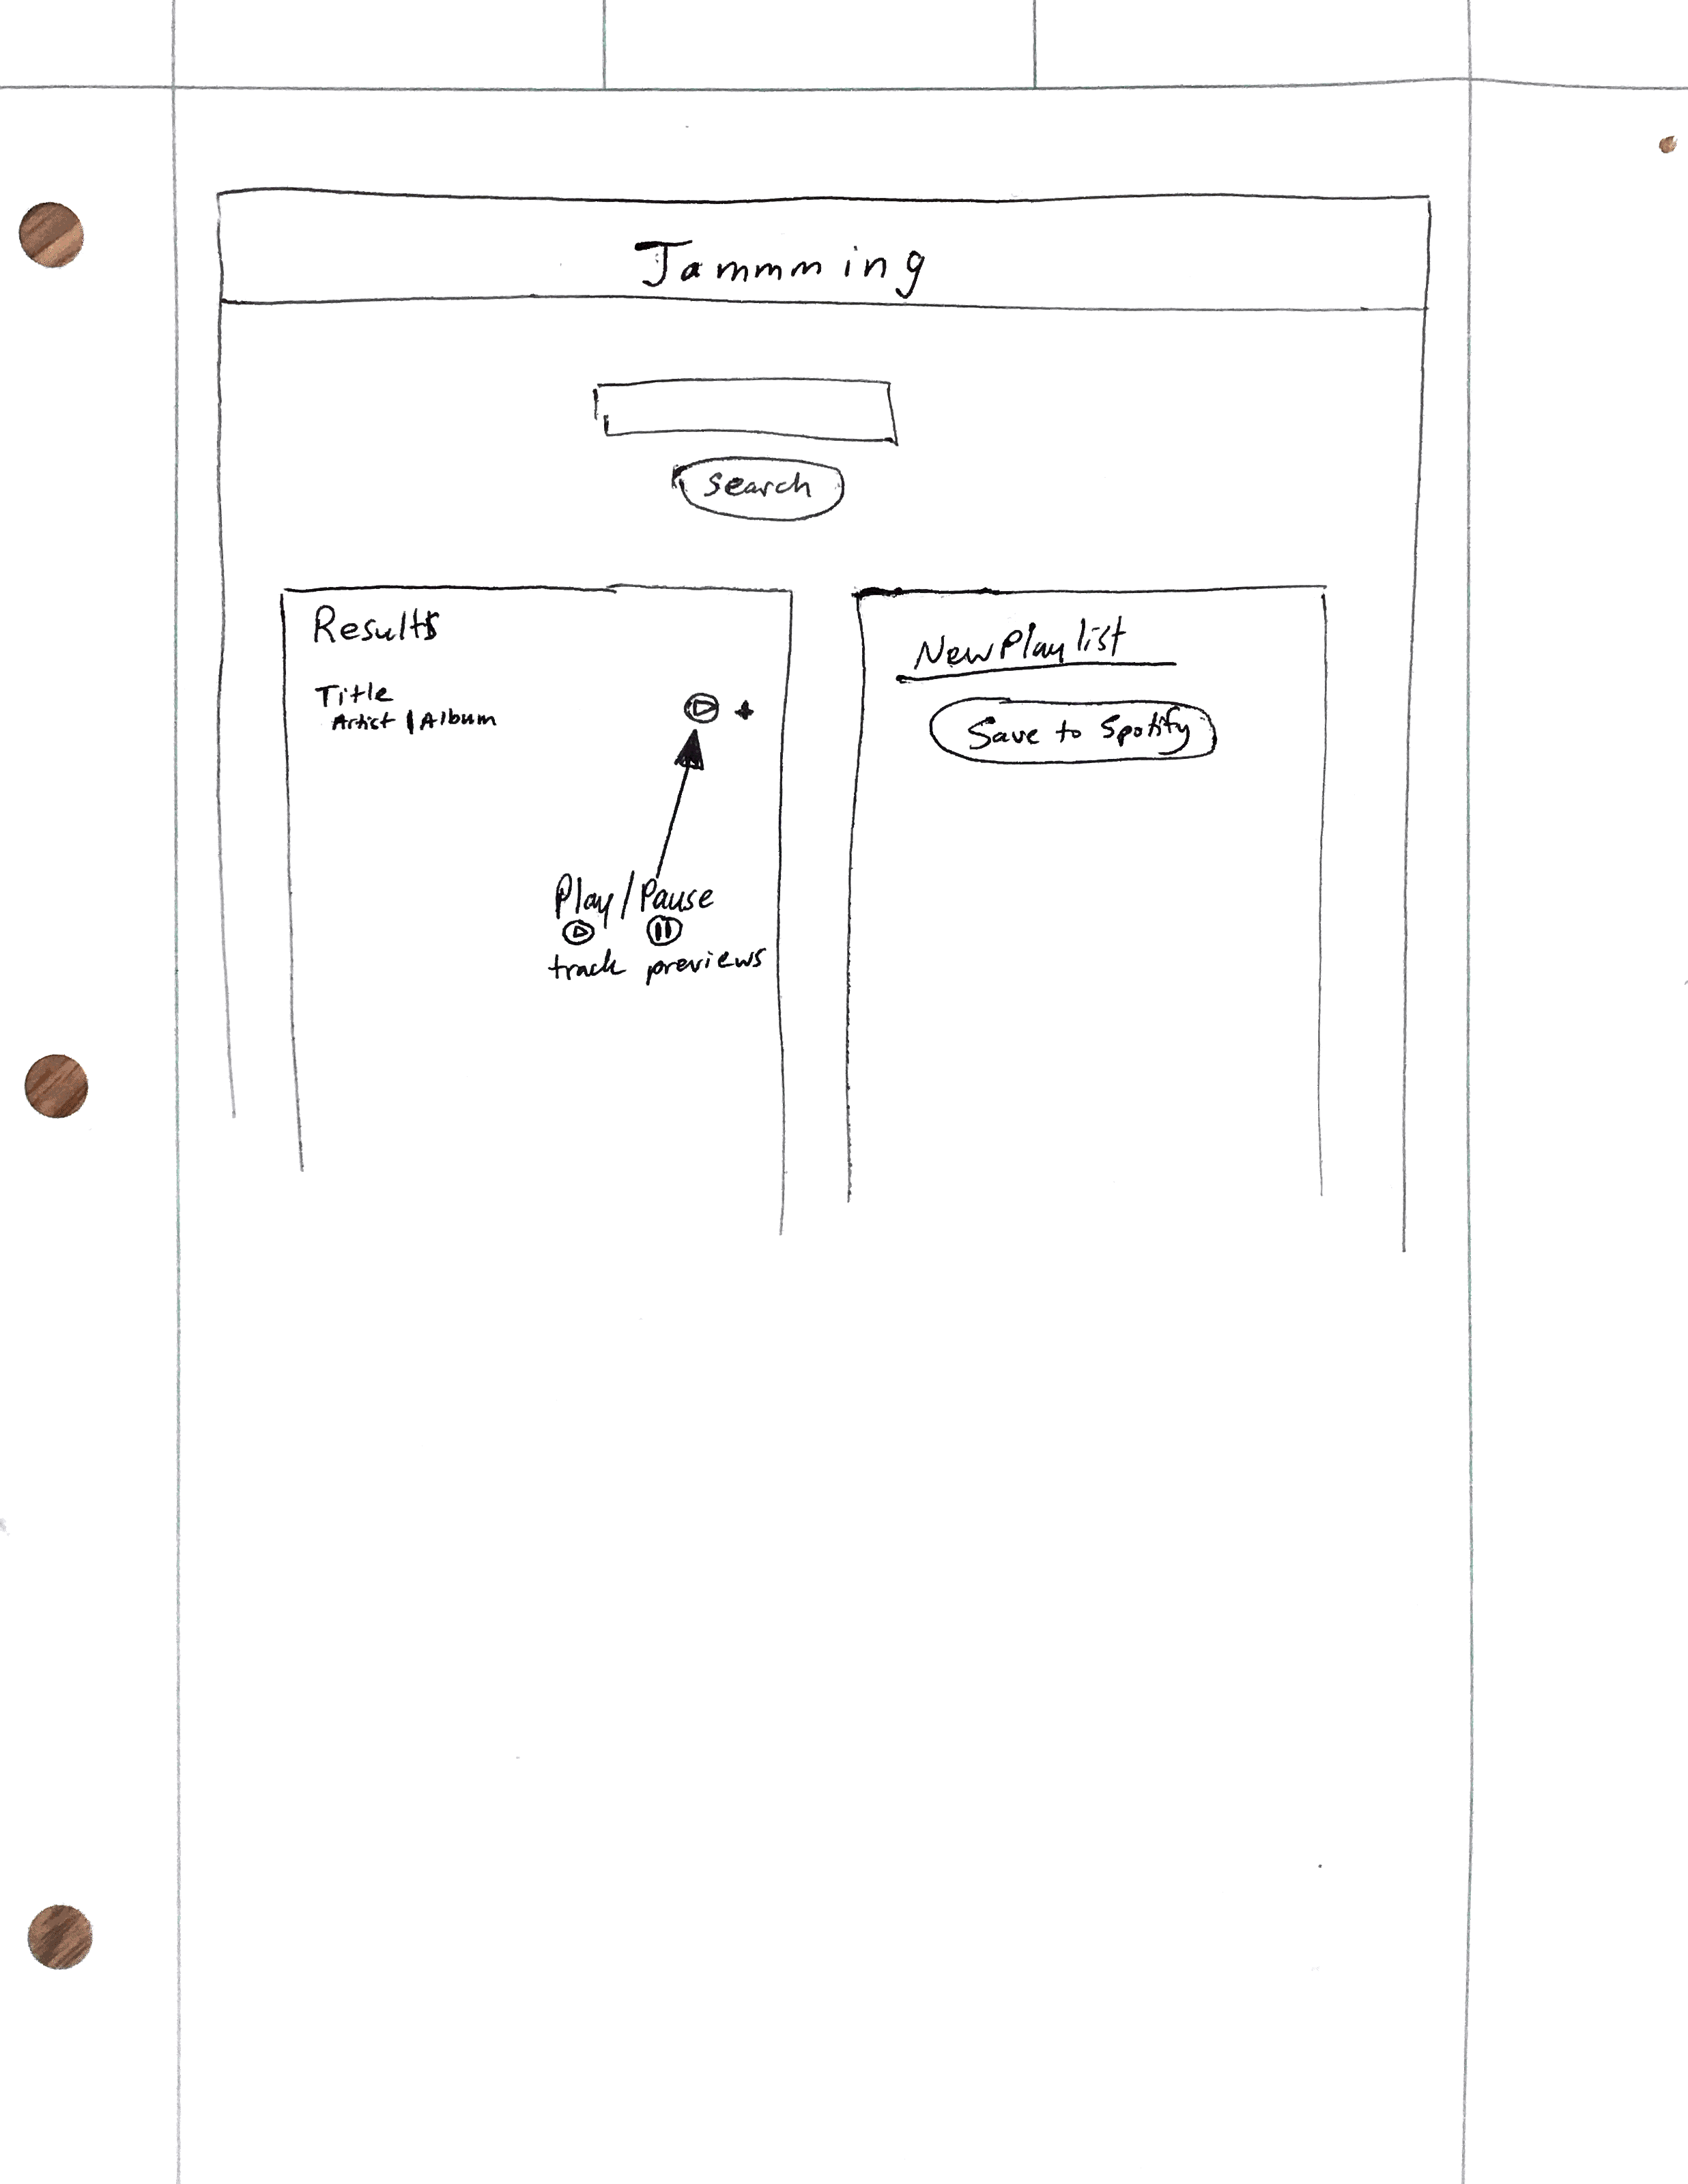 Jammming
Search
Results
Title
Artist | Album
+
Play/Pause
track previews
New Playlist
Save to Spotify